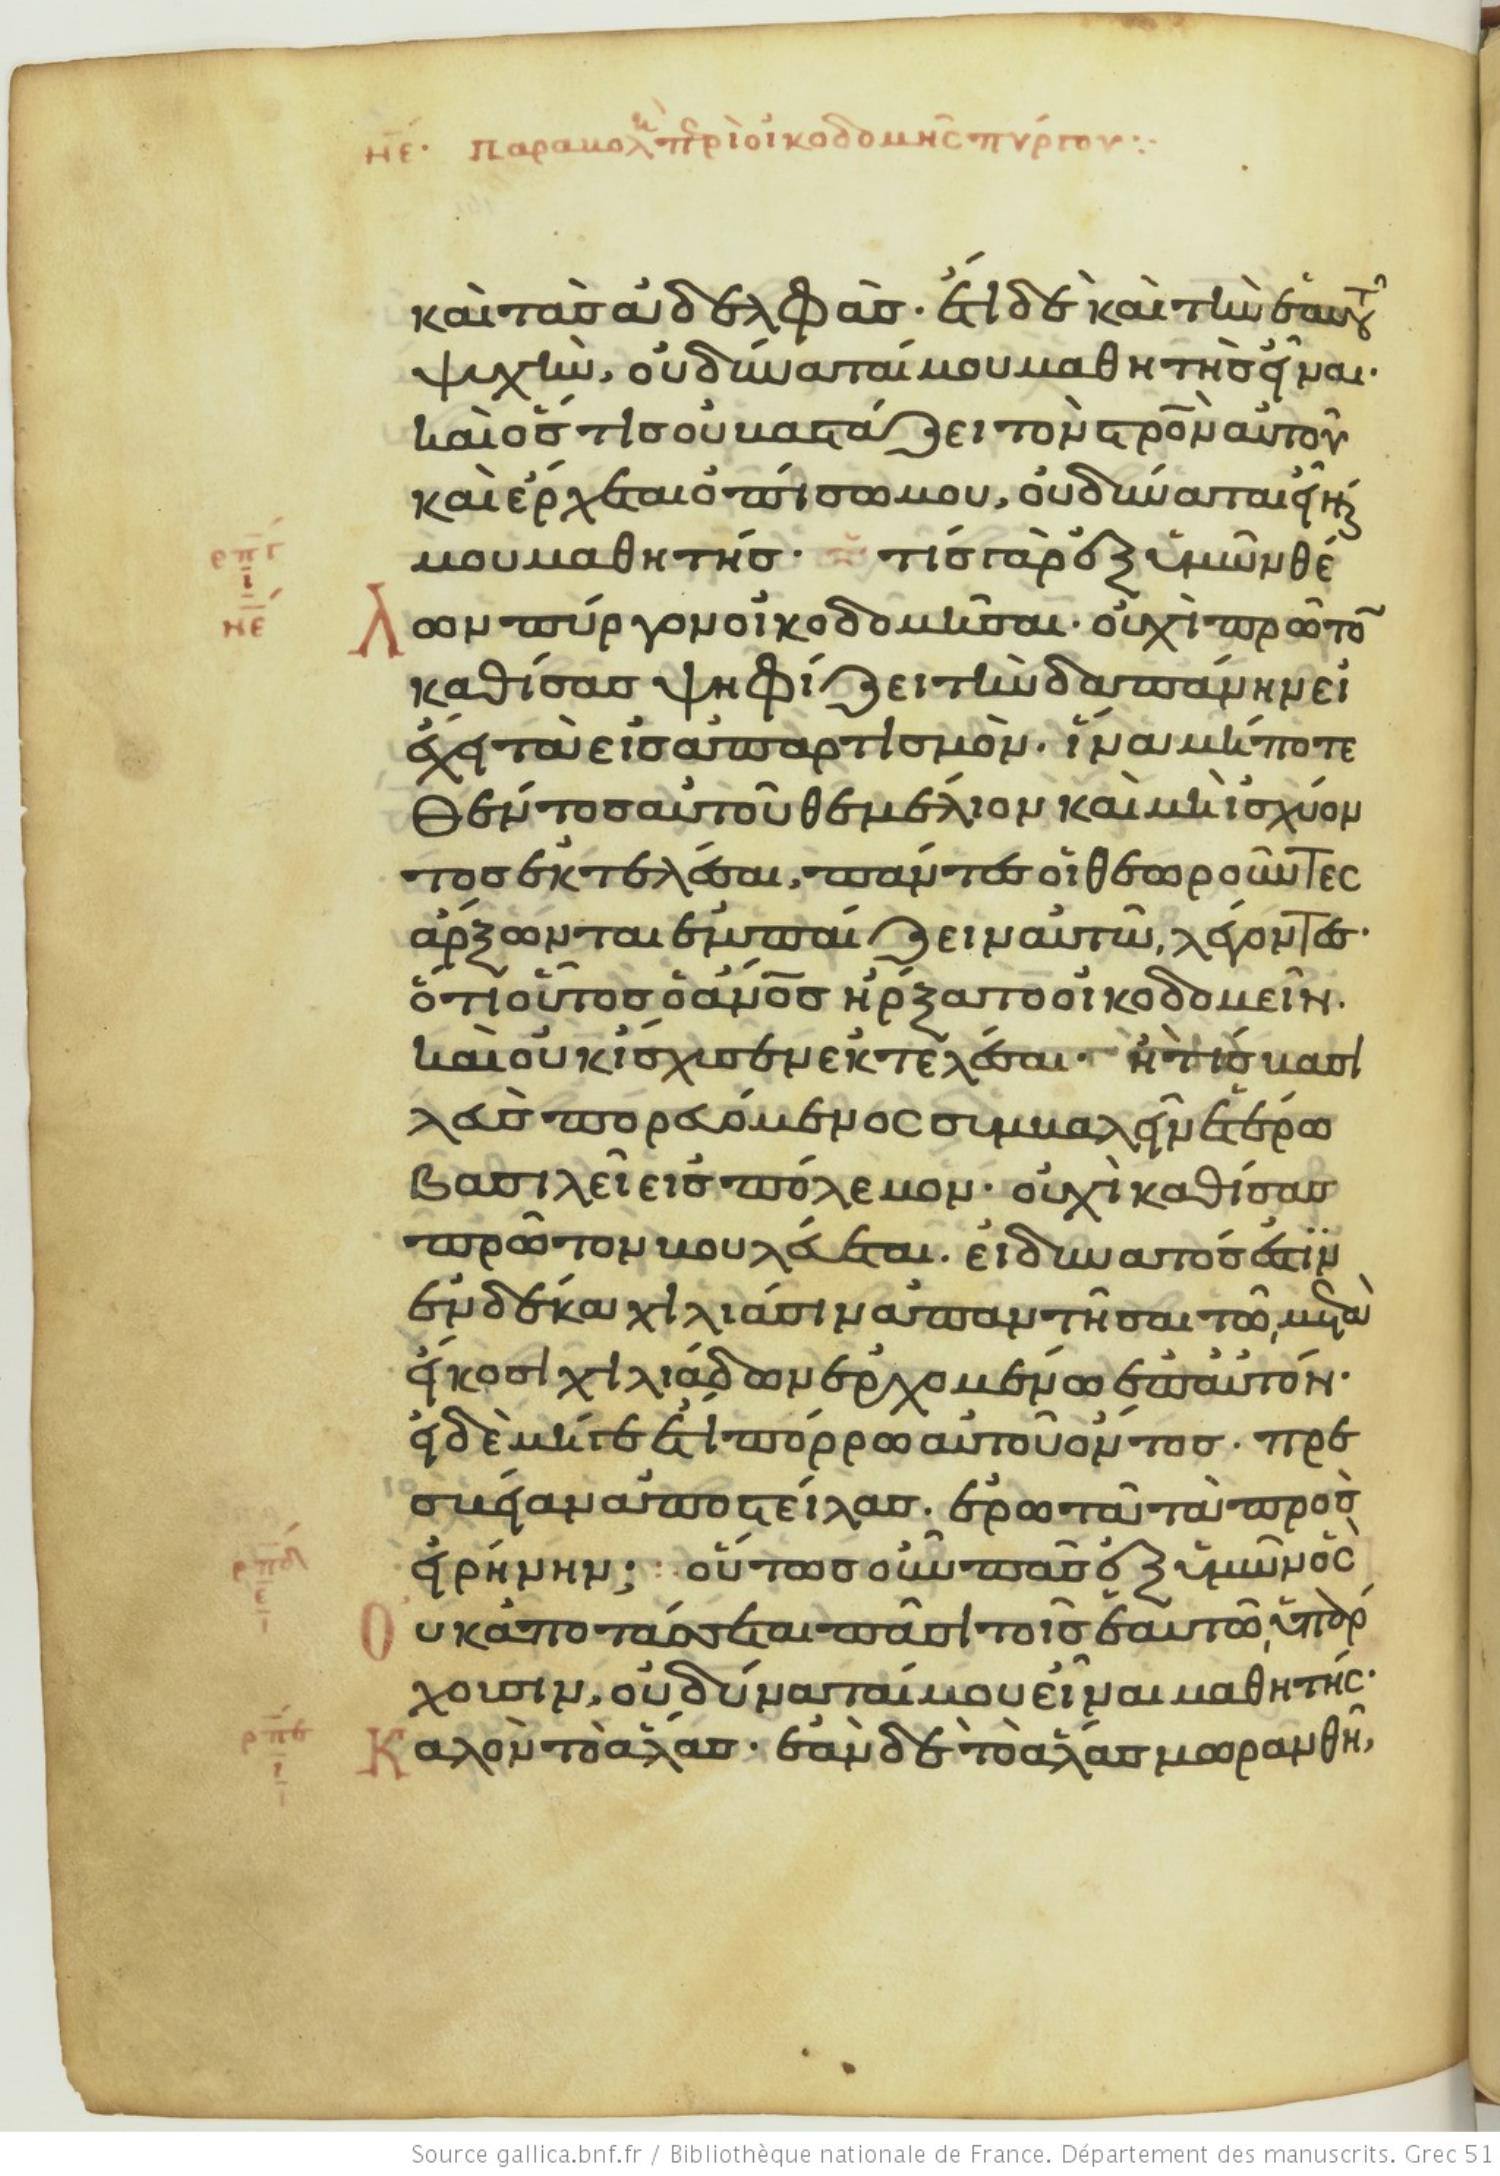 νε· παραβολὴ περὶ οἰκοδομῆς πύργου:·
καὶ τὰς ἀδελφάς· ἔτι δὲ καὶ τὴν ἑαυτοῦ
ψυχὴν, οὐ δύναταί μου μαθητὴς εἶναι·
καὶ ὅστις οὐ βαστάζει τὸν στρον αὐτοῦ
καὶ ἔρχεται ὀπίσω μου, οὐ δύναται εἶναι
μου μαθητής· τίς γὰρ ἐξ ὑμῶν θέ
ρπγ
ι
νε
λων πύργον οἰκοδομῆσαι· οὐχὶ πρῶτον
καθίσας ψηφίζει τὴν δαπάνην εἰ
ἔχει τὰ εἰς ἀπαρτισμόν· ἵνα μήποτε
θέντος αὐτοῦ θεμέλιον καὶ μὴ ἰσχύον
τος ἐκτελέσαι, πάντες οἱ θεωροῦντες
ἄρξωνται ἐμπαίζειν αὐτῶ, λέγοντες·
ὅτι οὗτος ὁ ανος ἤρξατο οἰκοδομεῖν·
καὶ οὐκ ἴσχυσεν ἐκτελέσαι· ἢ τίς βασι
λεὺς πορευόμενος συμβαλεῖν ἑτέρω
βασιλεῖ εἰς πόλεμον· οὐχὶ καθίσας
πρῶτον βουλεύεται· εἰ δυνατός ἐστιν
ἐν δέκα χιλιάσιν ἀπαντῆσαι τῶ μετὰ
εἴκοσι χιλιάδων ἐρχομένω ἐπ αὐτόν·
εἰ δὲ μήγε ἔτι πόρρω αὐτοῦ ὄντος· πρε
σβείαν ἀποστείλας· ἐρωτᾶ τὰ πρὸς
εἰρήνην; οὕτως οὖν πᾶς ἐξ ὑμῶν ὃς
ρπδ
ε
οὐκ ἀποτάσσεται πᾶσι τοῖς ἑαυτοῦ ὑπάρ
χουσιν, οὐ δύναταί μου εἶναι μαθητής·
ρπε
ι
Καλὸν τὸ ἅλας· ἐὰν δὲ τὸ ἅλας μωρανθῆ,
Source gallica.bnf.fr / Bibliothèque nationale de France. Département des manuscrits. Grec 51